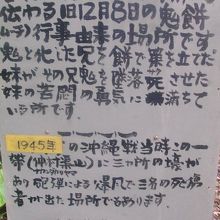 伝わる旧12月8日の鬼餅
ムーチー行事由来の場所です
鬼と化した兄を餅で策を立て
妹がその兄を墜落死させた
妹の苦悶の勇気に満ちて
いる所です
1945年の沖縄戦当時この一
帯(仲村渠山)に三ヵ所の壕が
あり死弾による爆風で三名の死傷
者が出た場所でもあります